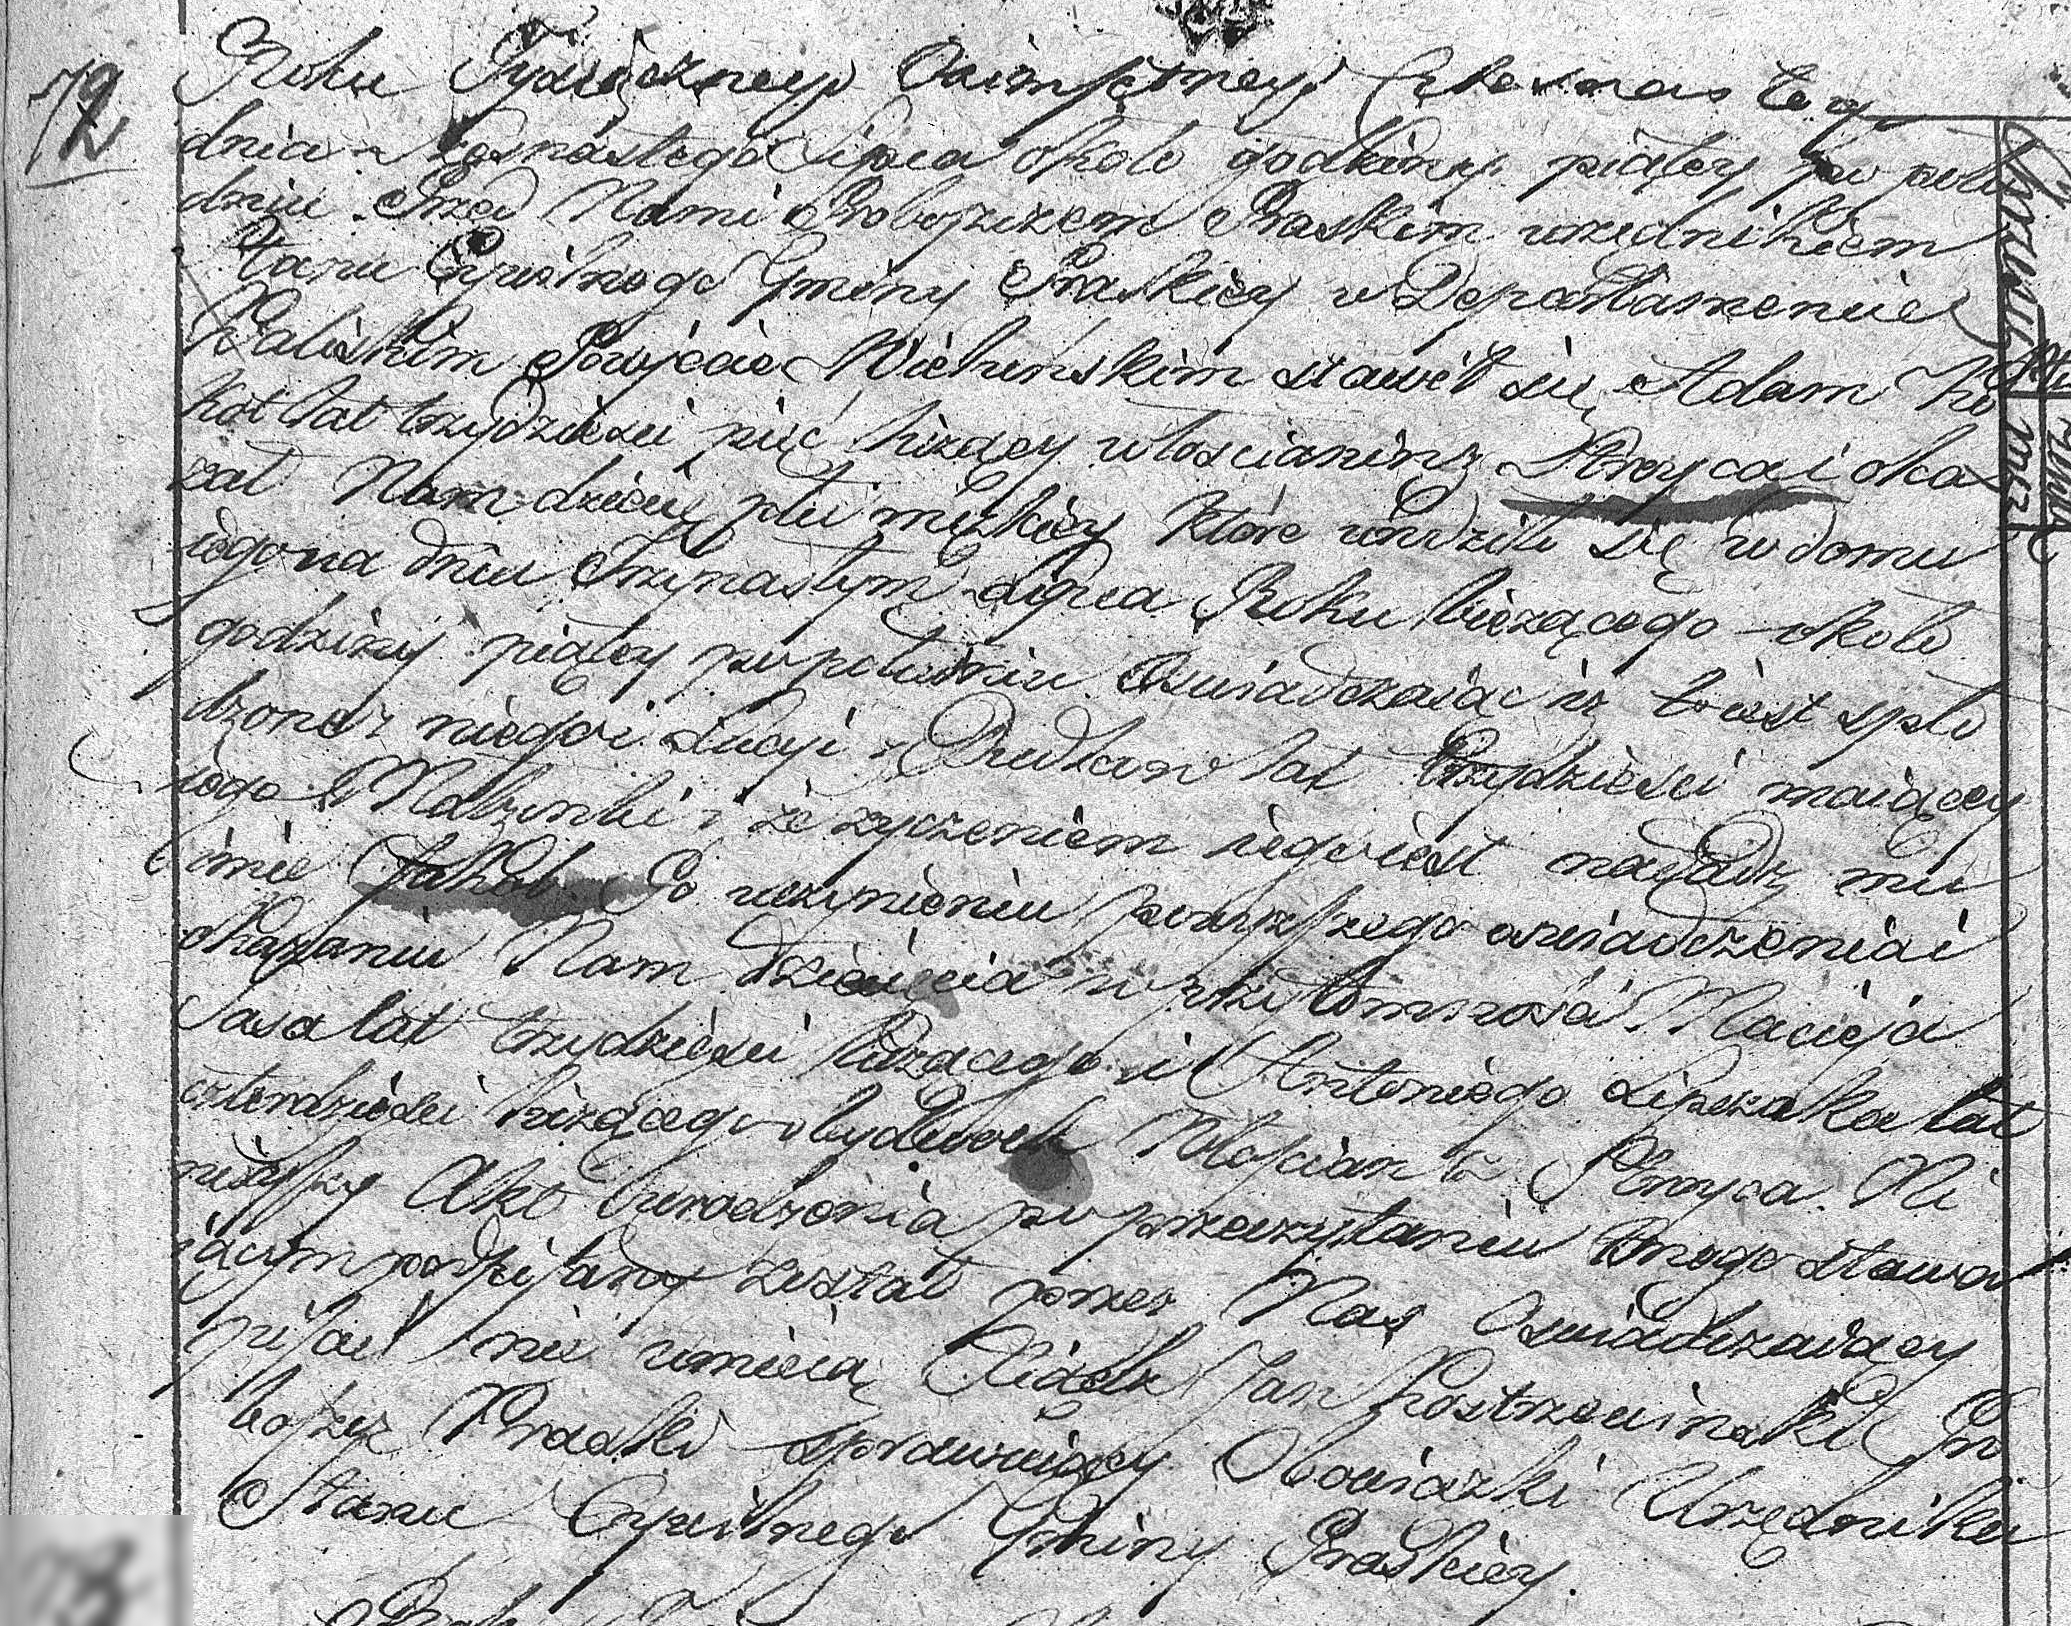 72
Roku Tysiącznego Ośmsetnego Czternastego
dnia Lipca około godziny piątey po połu
dniu Przed Nami Proboszczem Praskim urzędnikiem
Stanu Cywilnego Gminy Praskiey w Departamencie
Kaliskim Powiecie Wieluńskim stawił się Adam Ko
koł lat trzydzieści pięć liczący włościanin z Stroyca i oka
zał Nam dziecię płci męzkiey które urodziło się w domu
iego na dniu Trzynastym Lipca Roku bieżącego około
godziny piątey po południu Oswiadczaiąc iż to iest spło
dzone z niego i Łucyi z lat Trzydzieści maiącey
iego Małzonki i że życzeniem iego iest nadadź mu
imie Jakób. Po uczynieniu powyższego oswiadczenia i
okazaniu Nam dziecięcia w przytomności Macieja
Sasa lat trzydzieści liczącego i Antoniego Lipczaka lat
czterdzieści liczącego obydwoch Włoscian z Stroyca. Ni
nieyszy Akt urodzenia po przeczytaniu onego stawa
iącym podpisany został przez Nas Oswiadczaiący
pisać nie umieią Xiądz Jan Kostrzewinski Pro
boszcz Praski sprawuiący Obowiązki Urzędnika
Stanu Cywilnego Gminy Praskiey.